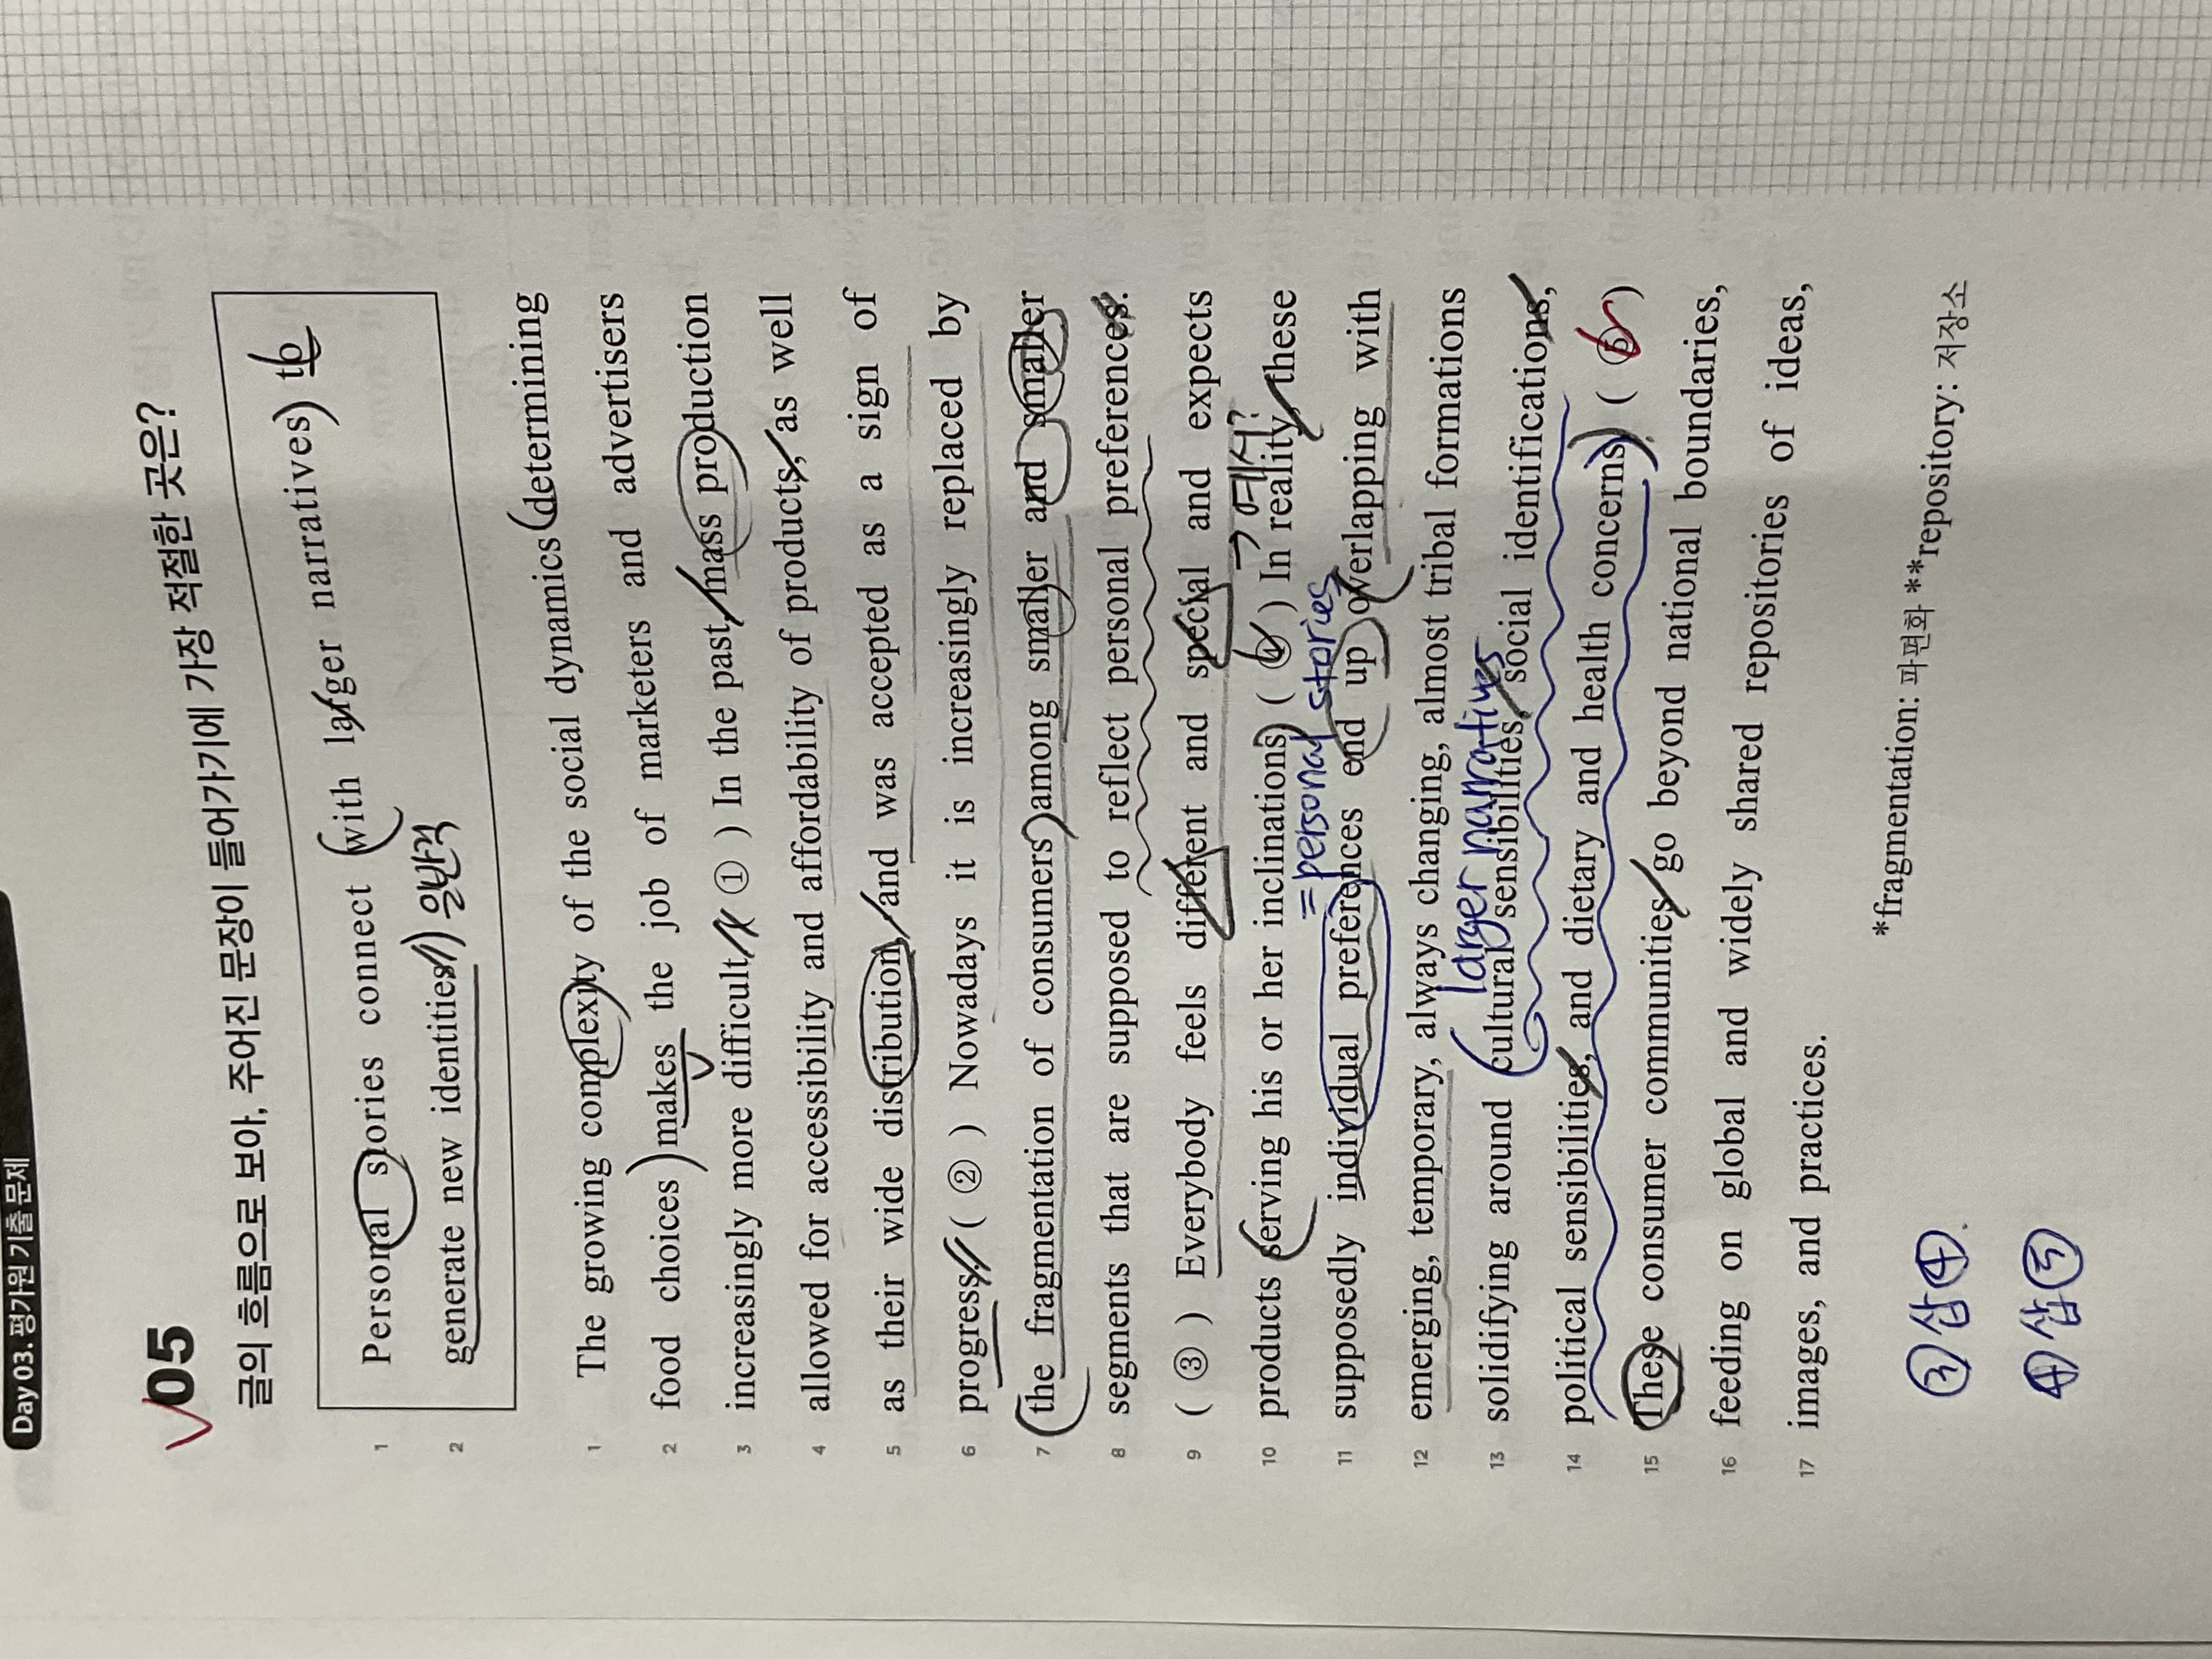 Day 03. 평가원 기출 문제
05
글의 흐름으로 보아, 주어진 문장이 들어가기에 가장 적절한 곳은?
1 Personal stories connect with larger narratives to
2 generate new identities. 일반적
1 The growing complexity of the social dynamics determining
2 food choices makes the job of marketers and advertisers
3 increasingly more difficult. ( ① ) In the past, mass production
4 allowed for accessibility and affordability of products, as well
5 as their wide distribution, and was accepted as a sign of
6 progress. ( ② ) Nowadays it is increasingly replaced by
7 the fragmentation of consumers among smaller and smaller
8 segments that are supposed to reflect personal preferences.
9 ( ③ ) Everybody feels different and special and expects
예시?
10 products serving his or her inclinations. ( ④ ) In reality, these
= personal stories
11 supposedly individual preferences end up overlapping with
12 emerging, temporary, always changing, almost tribal formations
larger narratives
13 solidifying around cultural sensibilities, social identifications,
14 political sensibilities, and dietary and health concerns. ( ⑤ )
15 These consumer communities go beyond national boundaries,
16 feeding on global and widely shared repositories of ideas,
17 images, and practices.
*fragmentation: 파편화 **repository: 저장소
③ 삽 ④.
④ 삽 ⑤